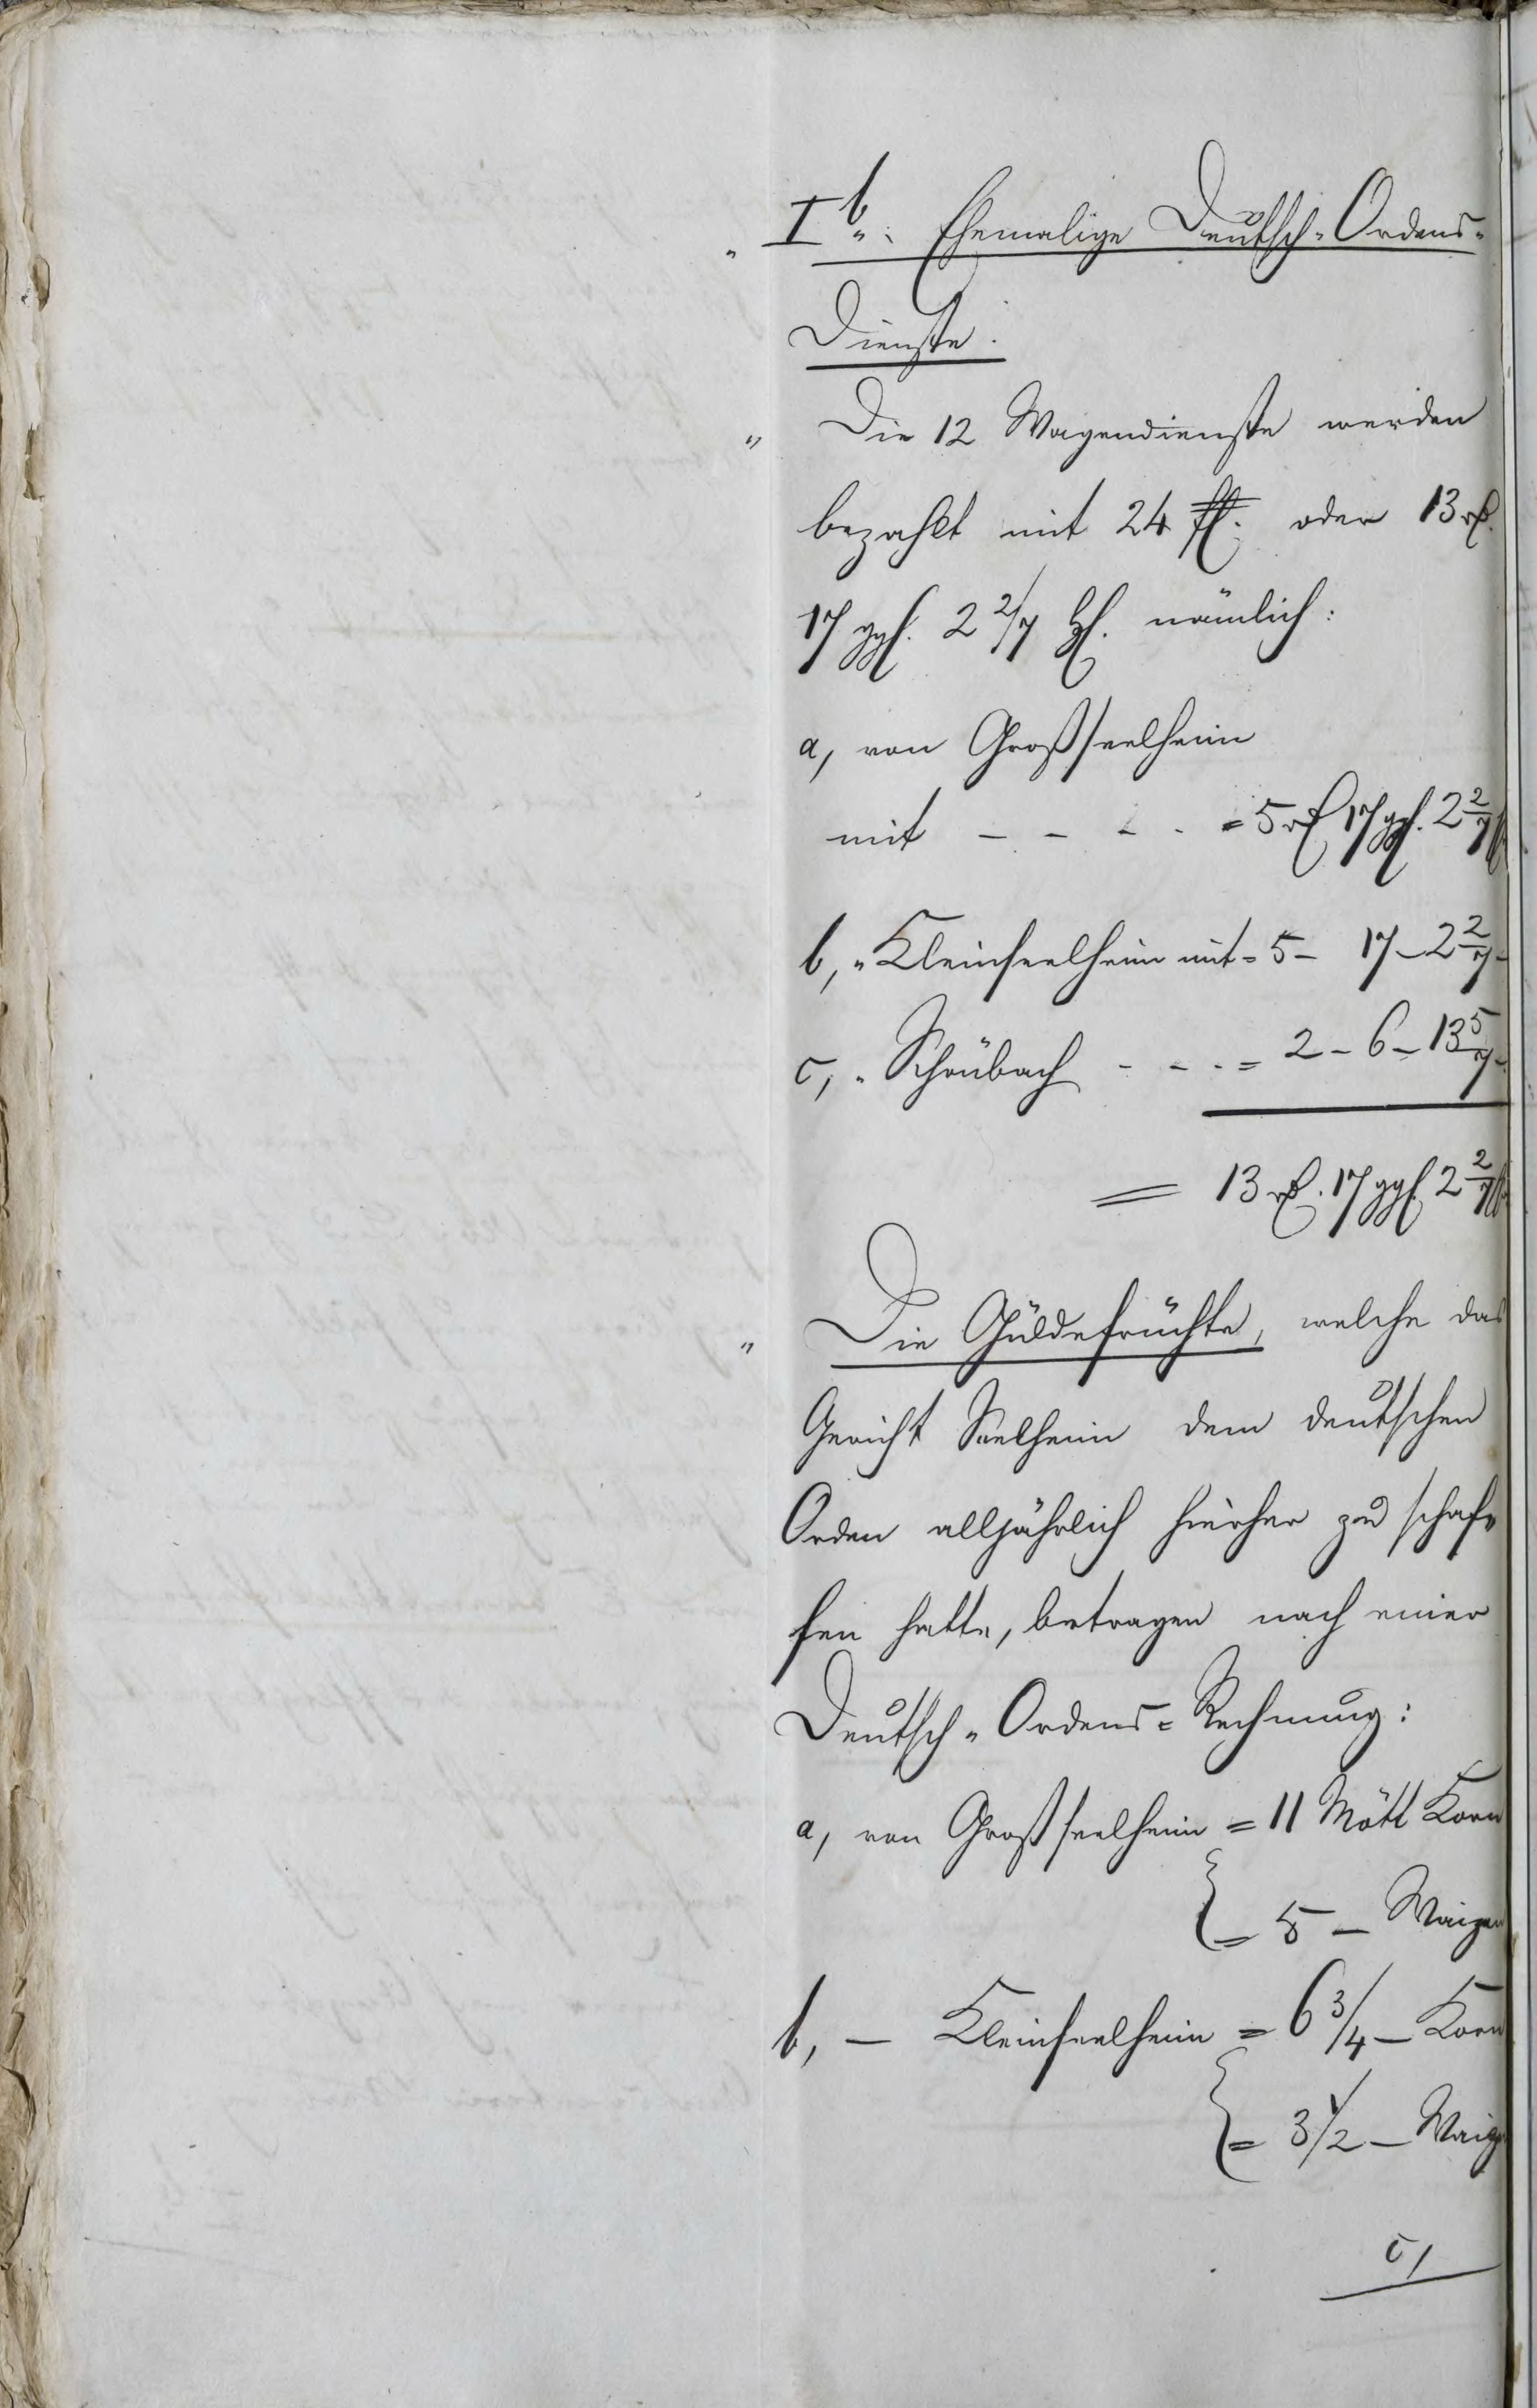 " I b. Ehemalige Deutsch-Ordens-
Dienste.
" Die 12 Wagendienste werden
bezahlt mit 24 fl. oder 13 rß.
17 ggl. 2 2/7 hl. nämlich:
a, von Großseelheim
mit - - - - = 5 rß 17 ggl. 2 2/7
b, " Kleinseelheim mit = 5 - 17 - 2 2/7 -
c, " Schönbach - - - = 2 - 6 - 13 5/7 -
= 13 rß. 17 ggl. 2 2/7
" Die Güldefrüchte, welche das
Gericht Seelheim dem deutschen
Orden alljährlich hierher zu schaf-
fen hatte, betragen nach einer
Deutsch-Ordens-Rechnung:
a, von Großseelheim = 11 Mött Korn
{ = 5 - Waizen
b, - Kleinseelheim = 6 3/4 - Korn
{ = 3 1/2 - Waiz
c,